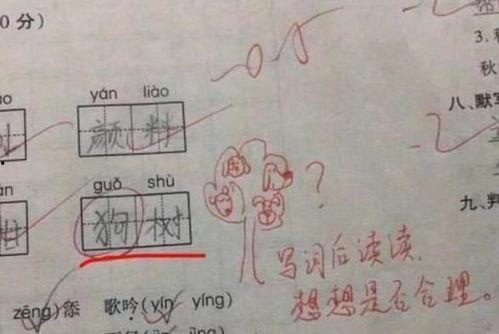 0 分)
yán liào
颜料
guǒ shù
狗树
?
写词后读读,
想想是否合理。
zēng)添 歌吟(yín yíng)
3.
秋
八、默写
九、判